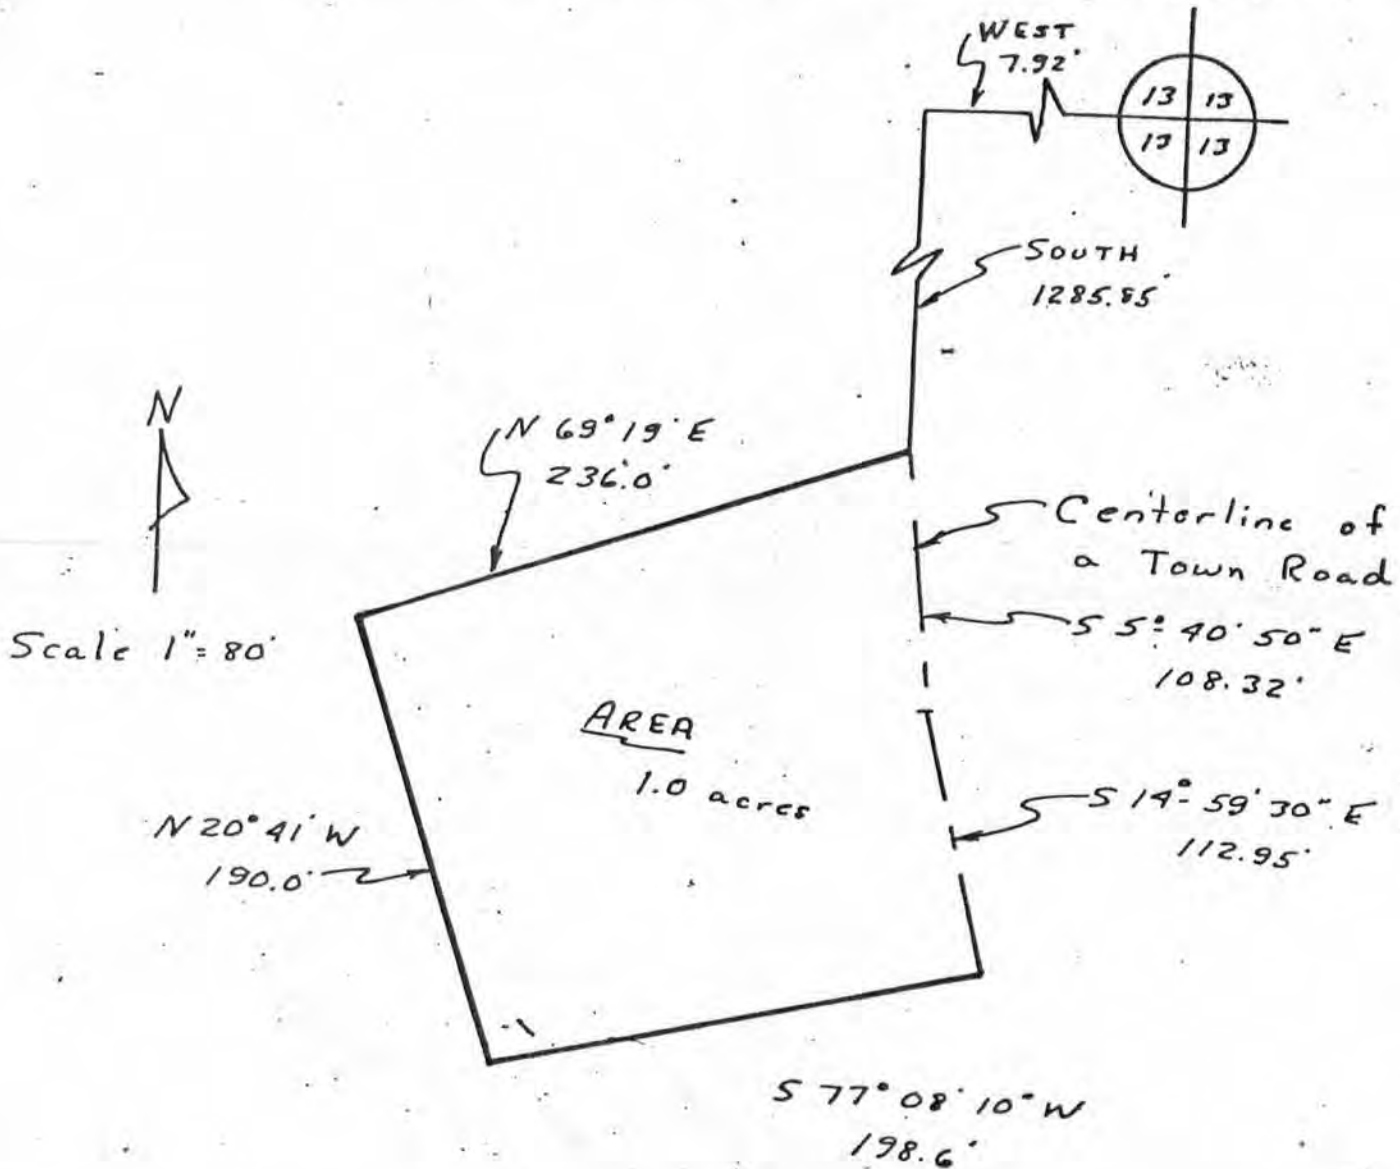 WEST
7.92'
13 13
13 13
SOUTH
1285.85'
N
N 69° 19' E
236.0'
Centerline of
a Town Road
Scale 1" = 80'
S 5° 40' 50" E
108.32'
AREA
1.0 acres
N 20° 41' W
190.0'
S 14° 59' 30" E
112.95'
S 77° 08' 10" W
198.6'